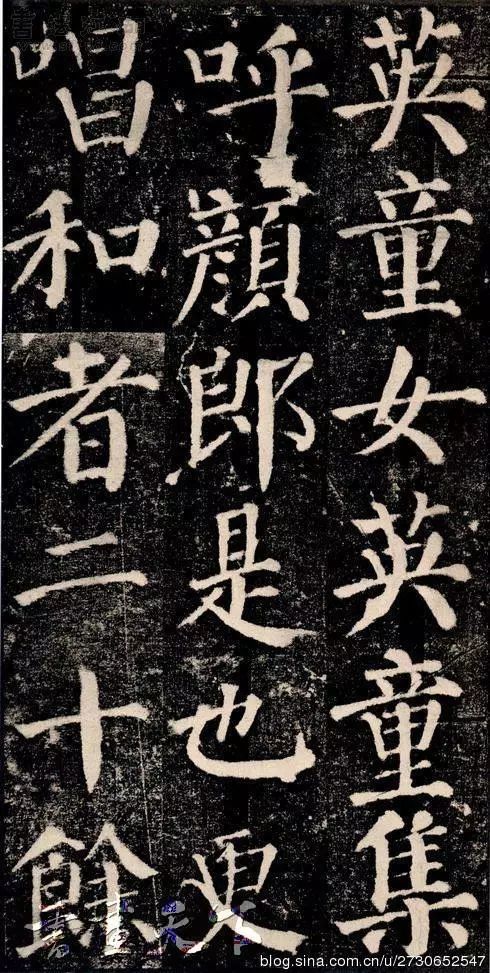 英童女英童集
呼顔郎是也更
唱和者二十餘
blog.sina.com.cn/u/2730652547